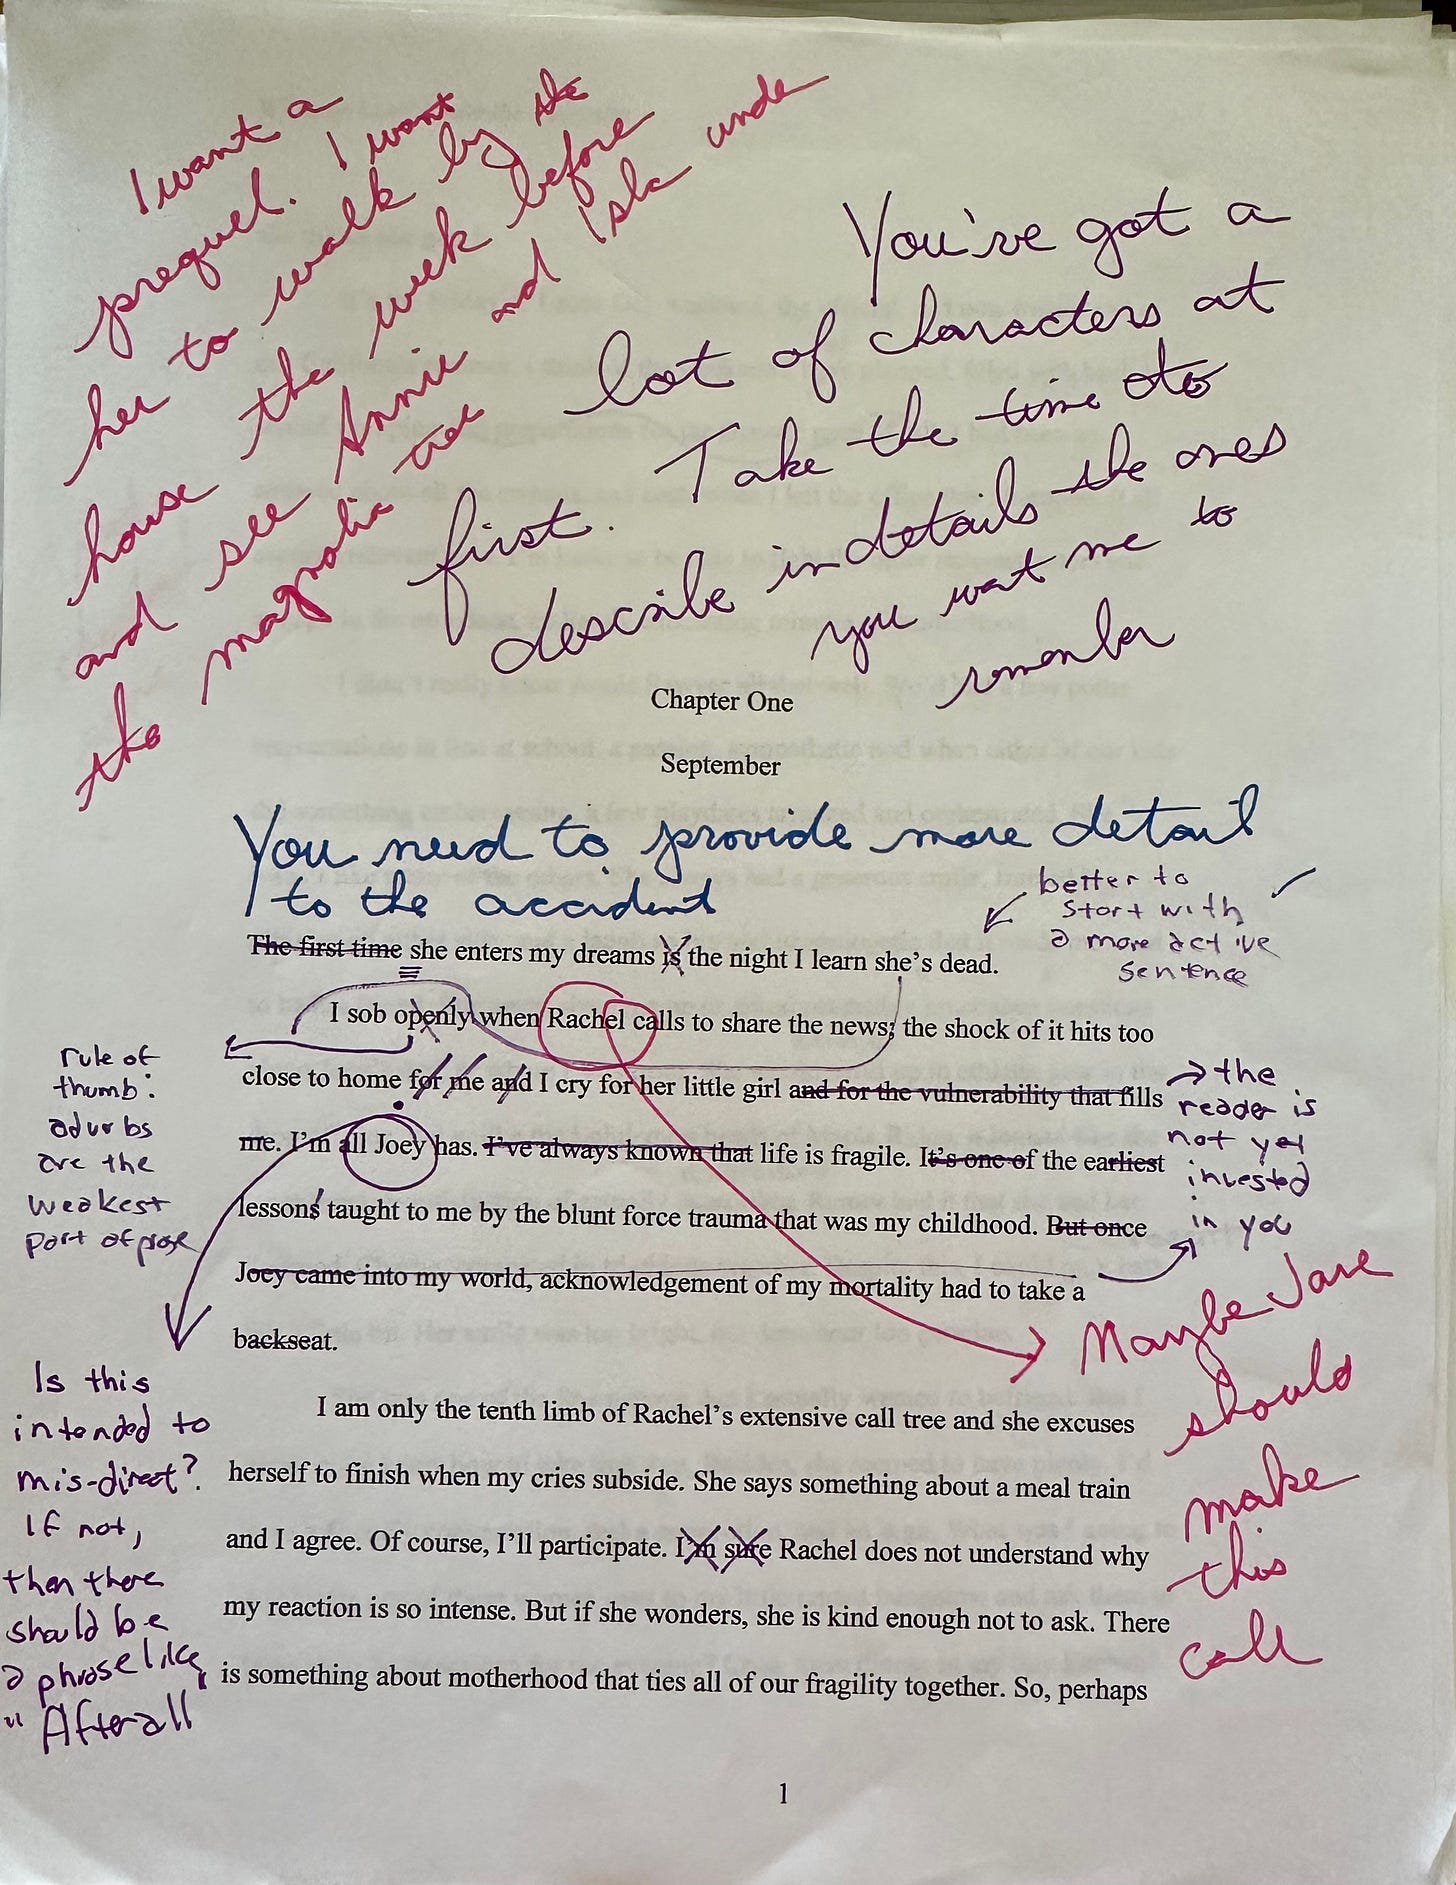 I want a
prequel. I want
her to walk by the
house the week before
and see Annie and Isla unde
the magnolia tree
You've got a
lot of characters at
first. Take the time to
describe in details the ones
you want me to
remember
Chapter One
September
You need to provide more detail
to the accident
better to
start with
a more active
sentence
The first time she enters my dreams is the night I learn she's dead.
I sob openly when Rachel calls to share the news; the shock of it hits too
close to home for me and I cry for her little girl and for the vulnerability that fills
me. I'm all Joey has. I've always known that life is fragile. It's one of the earliest
lessons taught to me by the blunt force trauma that was my childhood. But once
Joey came into my world, acknowledgement of my mortality had to take a
backseat.
rule of
thumb:
adverbs
are the
weakest
part of prose
the
reader is
not yet
invested
in you
Is this
intended to
mis-direct?
If not,
then there
should be
a phrase like,
" After all
Maybe Jane
should
make
this
call
I am only the tenth limb of Rachel's extensive call tree and she excuses
herself to finish when my cries subside. She says something about a meal train
and I agree. Of course, I'll participate. I'm sure Rachel does not understand why
my reaction is so intense. But if she wonders, she is kind enough not to ask. There
is something about motherhood that ties all of our fragility together. So, perhaps
1